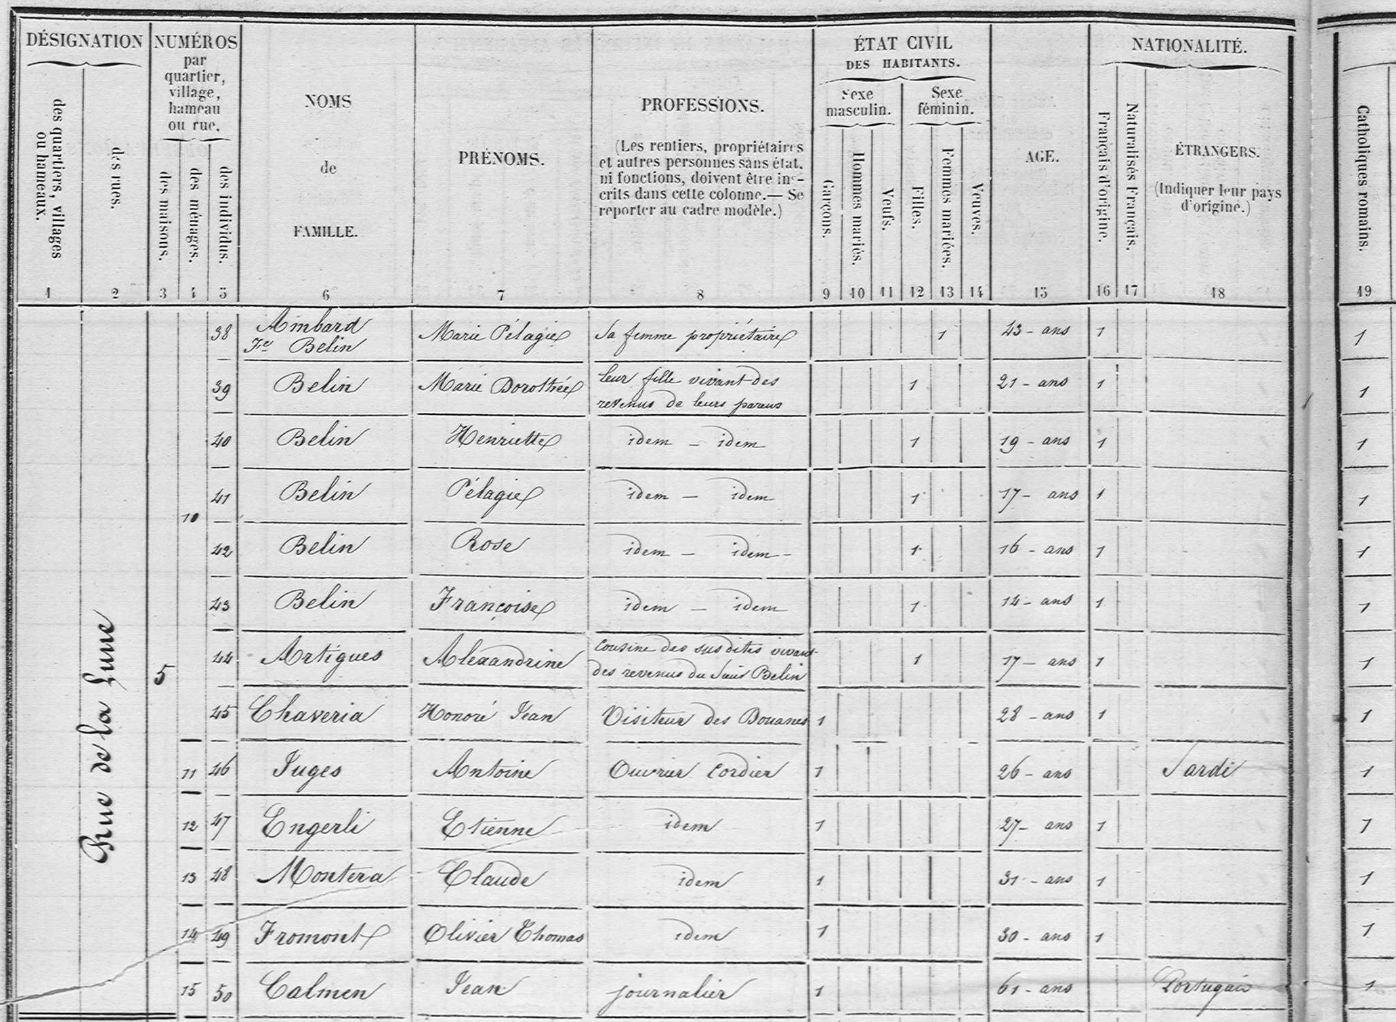 DÉSIGNATION NUMÉROS ÉTAT CIVIL NATIONALITÉ.
par
quartier,
village,
hameau
ou rue.
DES HABITANTS.
Sexe masculin. Sexe féminin.
des quartiers, villages ou hameaux. des rues. des maisons. des ménages. des individus.
NOMS
de
FAMILLE.
PRÉNOMS.
PROFESSIONS.
(Les rentiers, propriétaires
et autres personnes sans état,
ni fonctions, doivent être ins-
crits dans cette colonne.— Se
reporter au cadre modèle.)
Garçons. Hommes mariés. Veufs. Filles. Femmes mariées. Veuves.
AGE.
Français d'origine. Naturalisés Français.
ÉTRANGERS.
(Indiquer leur pays
d'origine.)
Catholiques romains.
1 2 3 4 5 6 7 8 9 10 11 12 13 14 15 16 17 18 19
Rue de la Lune
5
10
38 Ambard Marie Pélagie Sa femme propriétaire 1 43 - ans 1 1
Fe Belin
39 Belin Marie Dorothée leur fille vivant des 1 21 - ans 1 1
revenus de leurs parens
40 Belin Henriette idem - idem 1 19 - ans 1 1
41 Belin Pélagie idem - idem 1 17 - ans 1 1
42 Belin Rose idem - idem - 1 16 - ans 1 1
43 Belin Françoise idem - idem 1 14 - ans 1 1
44 Artigues Alexandrine cousine des susdites vivant 1 17 - ans 1 1
des revenus du Sieur Belin
45 Chaveria Honoré Jean Visiteur des Douanes 1 28 - ans 1 1
11 46 Juges Antoine Ouvrier Cordier 1 26 - ans Sarde 1
12 47 Engerli Etienne idem 1 27 - ans 1 1
13 48 Montera Claude idem 1 31 - ans 1 1
14 49 Fromont Olivier Thomas idem 1 30 - ans 1 1
15 50 Calmen Jean journalier 1 61 - ans Portugais 1